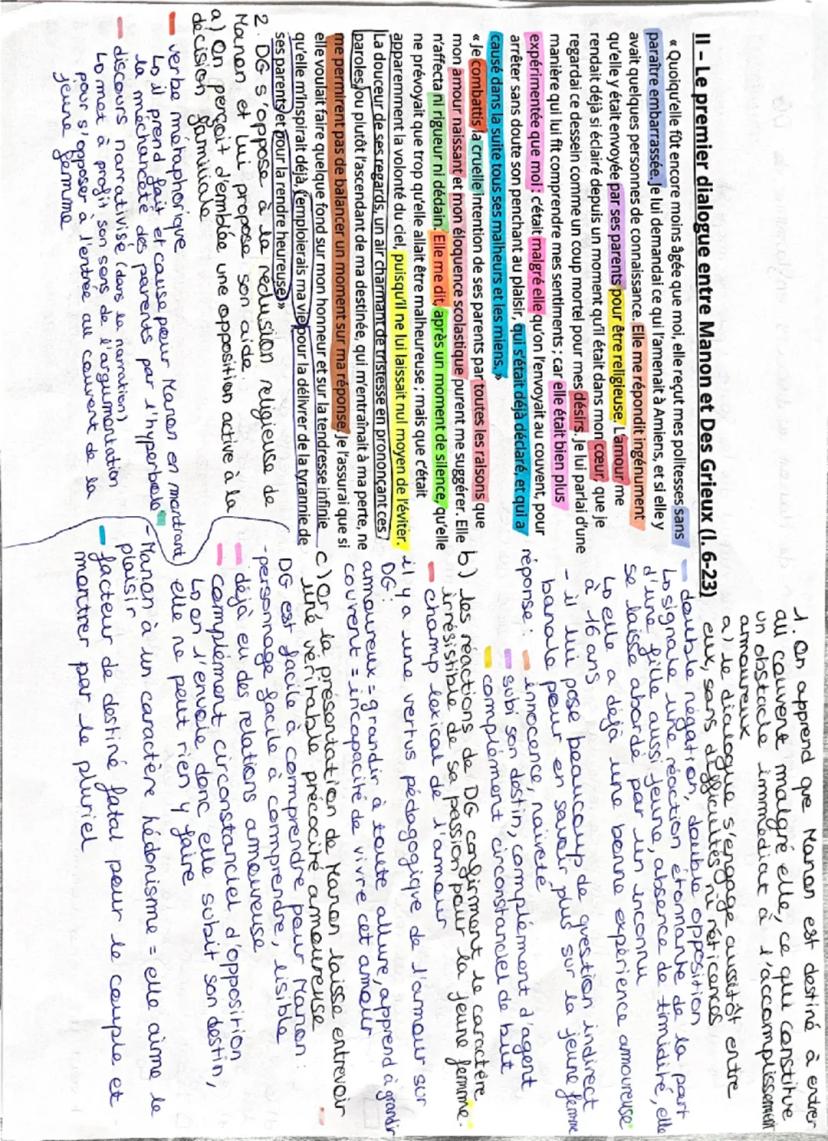 II – Le premier dialogue entre Manon et Des Grieux (l. 6-23)
« Quoiqu'elle fût encore moins âgée que moi, elle reçut mes politesses sans
paraître embarrassée. Je lui demandai ce qui l'amenait à Amiens, et si elle y
avait quelques personnes de connaissance. Elle me répondit ingénument
qu'elle y était envoyée par ses parents pour être religieuse. L'amour me
rendait déjà si éclairé depuis un moment qu'il était dans mon cœur, que je
regardai ce dessein comme un coup mortel pour mes désirs. Je lui parlai d'une
manière qui lui fit comprendre mes sentiments ; car elle était bien plus
expérimentée que moi : c'était malgré elle qu'on l'envoyait au couvent, pour
arrêter sans doute son penchant au plaisir, qui s'était déjà déclaré, et qui a
causé dans la suite tous ses malheurs et les miens. »
« Je combattis la cruelle intention de ses parents par toutes les raisons que
mon amour naissant et mon éloquence scolastique purent me suggérer. Elle
n'affecta ni rigueur ni dédain. Elle me dit, après un moment de silence, qu'elle
ne prévoyait que trop qu'elle allait être malheureuse ; mais que c'était
apparemment la volonté du ciel, puisqu'il ne lui laissait nul moyen de l'éviter.
La douceur de ses regards, un air charmant de tristesse en prononçant ces
paroles, ou plutôt l'ascendant de ma destinée, qui m'entraînait à ma perte, ne
me permirent pas de balancer un moment sur ma réponse. Je l'assurai que si
elle voulait faire quelque fond sur mon honneur et sur la tendresse infinie
qu'elle m'inspirait déjà, j'emploierais ma vie pour la délivrer de la tyrannie de
ses parents et pour la rendre heureuse. »
2. DG s'oppose à la réclusion religieuse de
Manon et lui propose son aide :
a) On perçoit d'emblée une opposition active à la
décision familiale
- verbe métaphorique
↳ il prend fait et cause pour Manon en montrant
la mechanceté des parents par l'hyperbole
- discours narrativisé (dans la narration)
↳ met à profit son sens de l'argumentation
pour s'opposer a l'entrée au couvent de la
jeune femme
1. On apprend que Manon est destiné à entrer
au couvent malgré elle, ce qui constitue
un obstacle immédiat à l'accomplissement
amoureux
a) le dialogue s'engage aussitôt entre
eux, sans difficultés ni réticences
- double négation, double opposition
↳ signale une réaction étonnante de la part
d'une fille aussi jeune, absence de timidité, elle
se laisse abordé par un inconnu
↳ elle a déjà une bonne expérience amoureuse
à 16 ans
- il lui pose beaucoup de question indirect
banale pour en savoir plus sur la jeune femme
réponse : - innocence, naïveté
- subi son destin, complément d'agent
- complément circonstanciel de but
b) les réactions de DG confirment le caractère
irrésistible de sa passion pour la jeune femme.
- champ lexical de l'amour
il y a une vertus pédagogique de l'amour sur
DG :
amoureux = grandir à toute allure, apprend à grandir
couvent = incapacité de vivre cet amour
c) Or la présentation de Manon laisse entrevoir
une véritable précocité amoureuse
DG est facile à comprendre pour Manon :
- personnage facile à comprendre, lisible
- déjà eu des relations amoureuse
- complément circonstanciel d'opposition
↳ on l'envoie donc elle subit son destin,
elle ne peut rien y faire
- Manon à un caractère hédonisme : elle aime le
plaisir
- facteur de destiné fatal pour le couple et
montrer par le pluriel